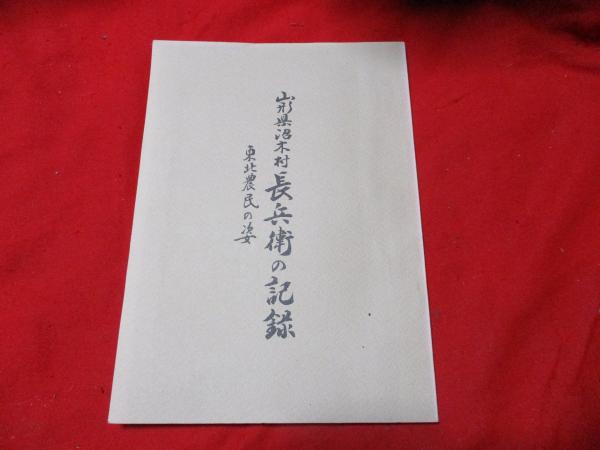 山形県沼木村 長兵衛の記録
東北農民の姿